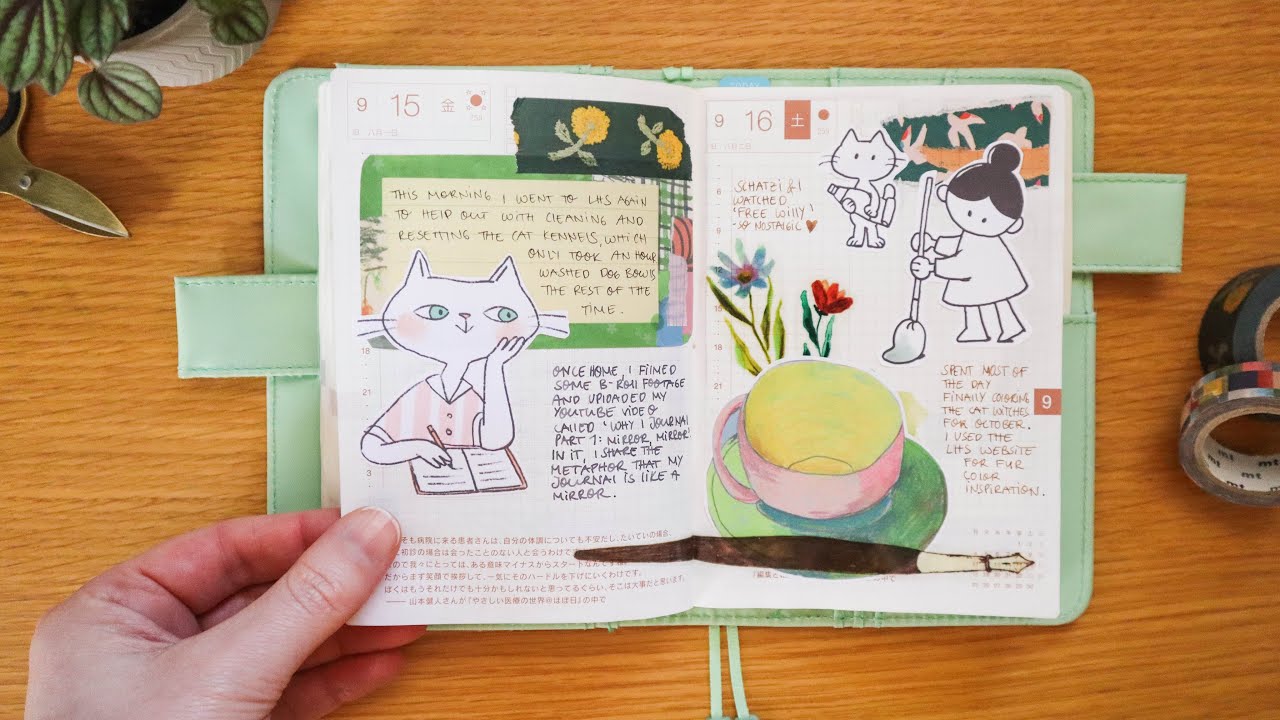 9 15 金
259
THIS MORNING I WENT TO LHS AGAIN
TO HELP OUT WITH CLEANING AND
RESETTING THE CAT KENNELS, WHICH
ONLY TOOK AN HOUR
WASHED DOG BOWLS
THE REST OF THE
TIME.
18
21
3
ONCE HOME, I FILMED
SOME B-ROLL FOOTAGE
AND UPLOADED MY
YOUTUBE VIDEO
CALLED 'WHY I JOURNAL
PART 1: MIRROR, MIRROR'.
IN IT, I SHARE THE
METAPHOR THAT MY
JOURNAL IS LIKE A
MIRROR.
そも病院に来る患者さんは、自分の体調についても不安だし、たいていの場合、
初診の場合は会ったことのない人と会うわけで
で我々にとっては、ある意味マイナスからスタートなんです
だからまず笑顔で挨拶して、一気にそのハードルを下げにいくわけです。
ぼくはもうそれだけでも十分かもしれないと思ってるぐらい、そこは大事だと思います。
―― 山本健人さんが『やさしい医療の世界@ほぼ日』の中で
9 16 土
259
6
SCHATZI & I
WATCHED
'FREE WILLY'
- SO NOSTALGIC
12
15
18
21
SPENT MOST OF
THE DAY
FINALLY COLORING
THE CAT WITCHES
FOR OCTOBER.
I USED THE
LHS WEBSITE
FOR FUR
COLOR
INSPIRATION.
9
の中で
mt mt